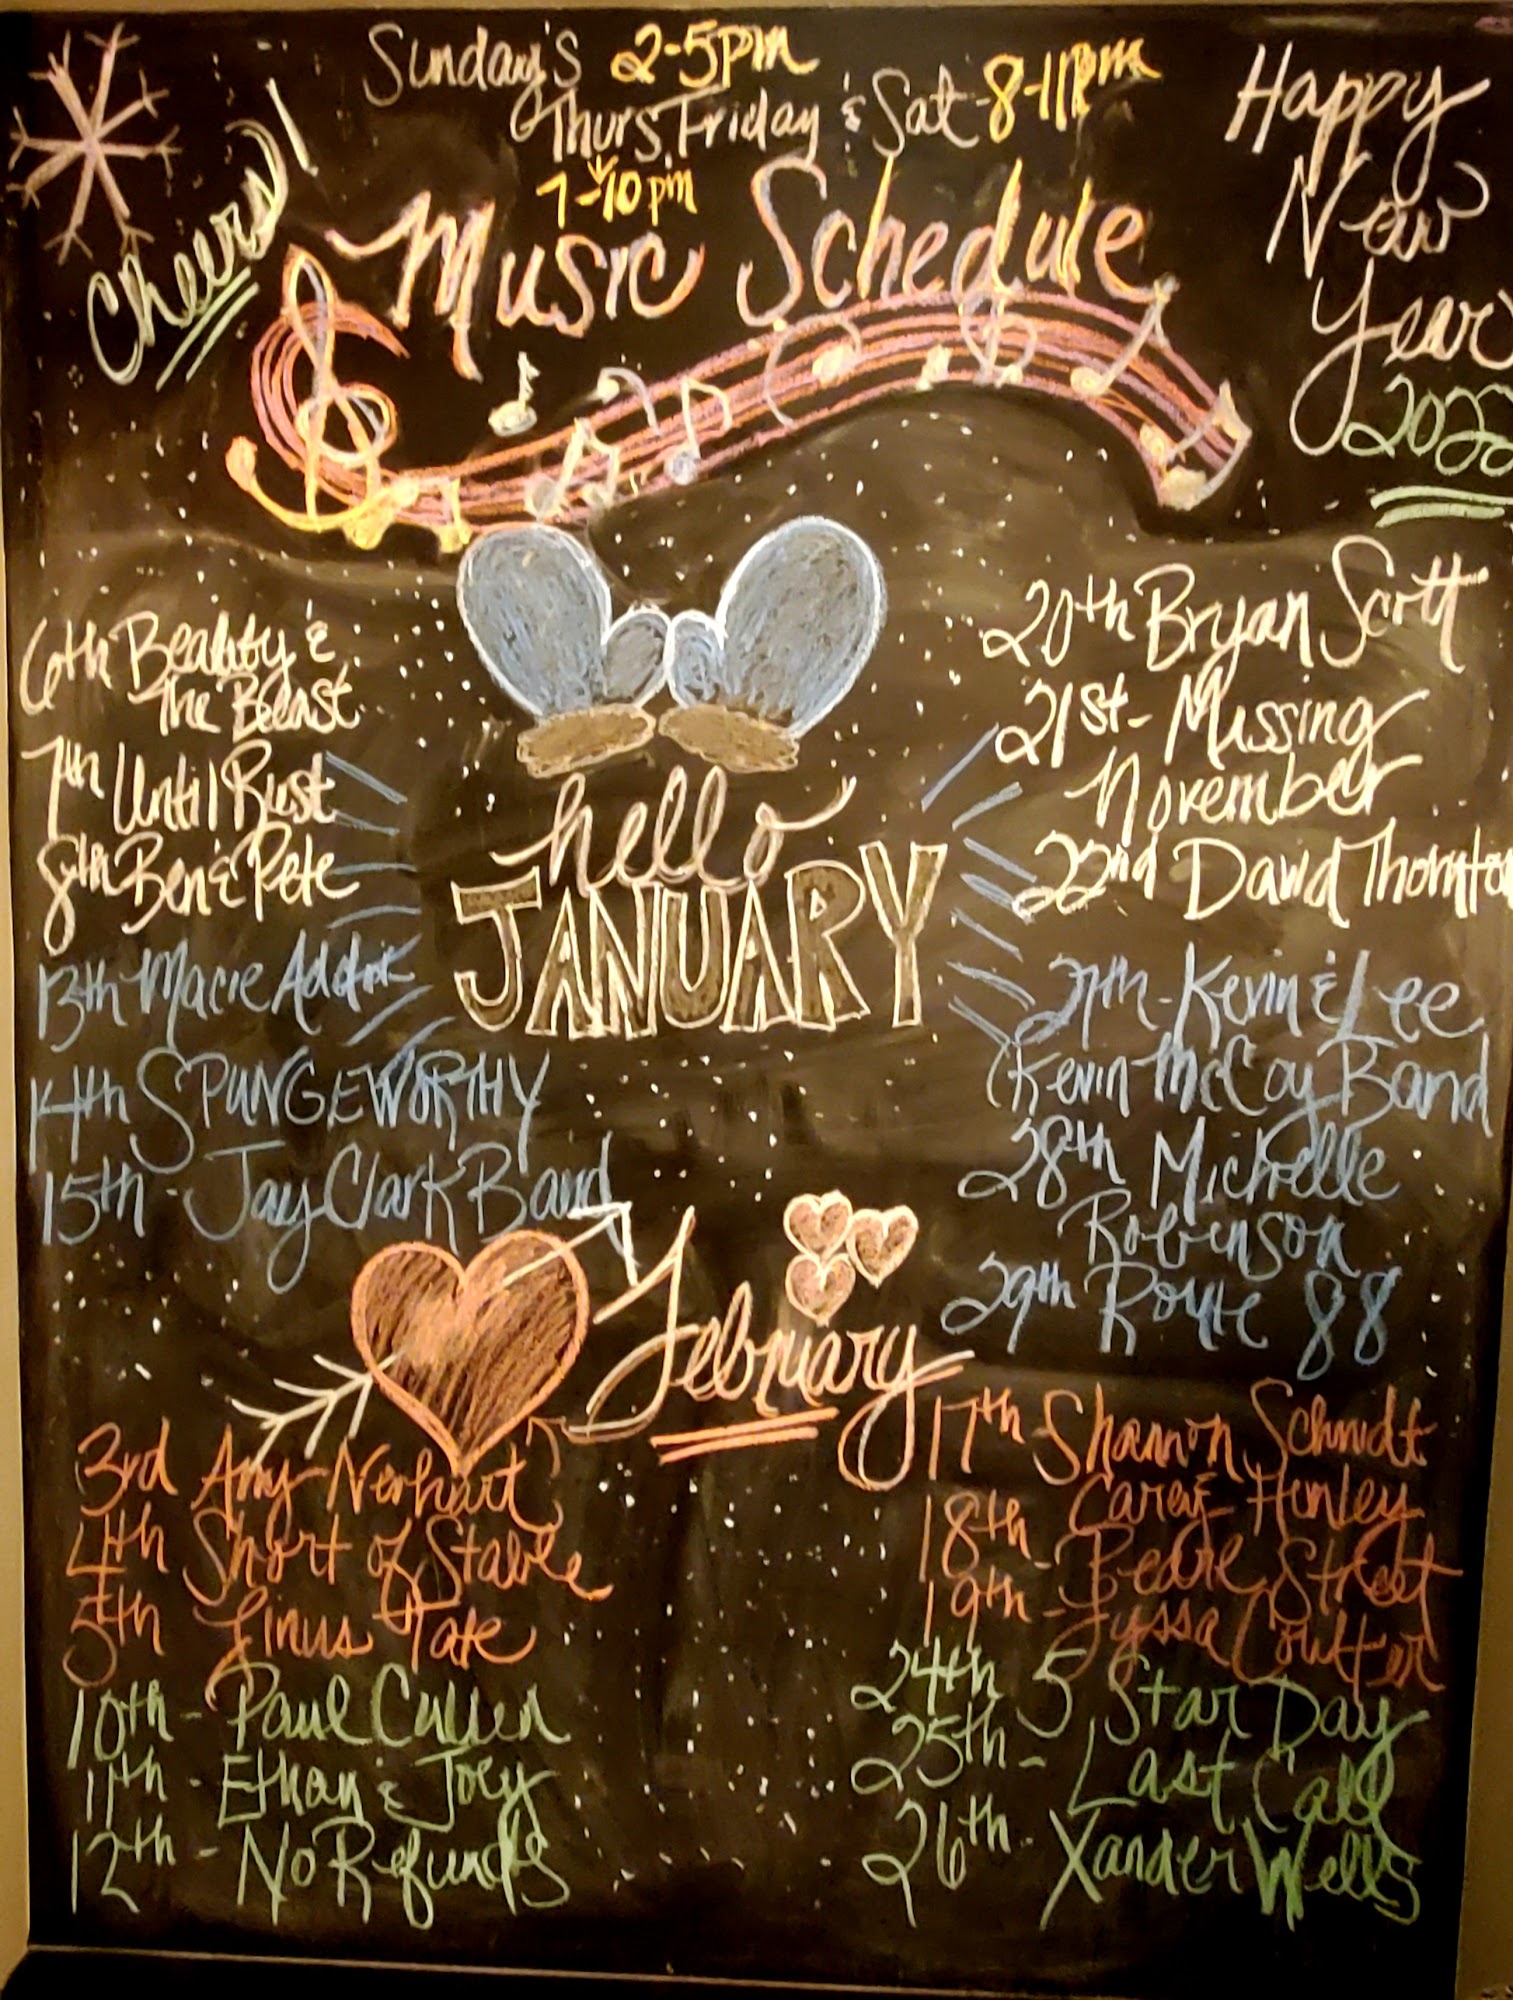 Sunday's 2-5pm
Thurs, Friday & Sat 8-11pm
7-10pm
Cheers!
Happy
New
Year
2022
Music Schedule
6th Beauty &
The Beast
7th Until Rust
8th Ben & Pete
13th Macie
14th SPUNGEWORTHY
15th - Jay Clark Band
hello
JANUARY
20th Bryan Scott
21st - Missing
November
22nd David Thornton
27th - Kevin & Lee
(Kevin McCoy Band
28th Michelle
Robinson
29th Route 88
February
3rd Amy Nerhart
4th Short of Stable
5th Linus Tate
10th - Paul Cullen
11th - Ethan & Joey
12th - No Refunds
17th Shannon Schmidt
Carey & Henley
18th - Pearl Street
19th - Lyssa Coulter
24th 5 Star Day
25th - Last Call
26th - Xander Wells